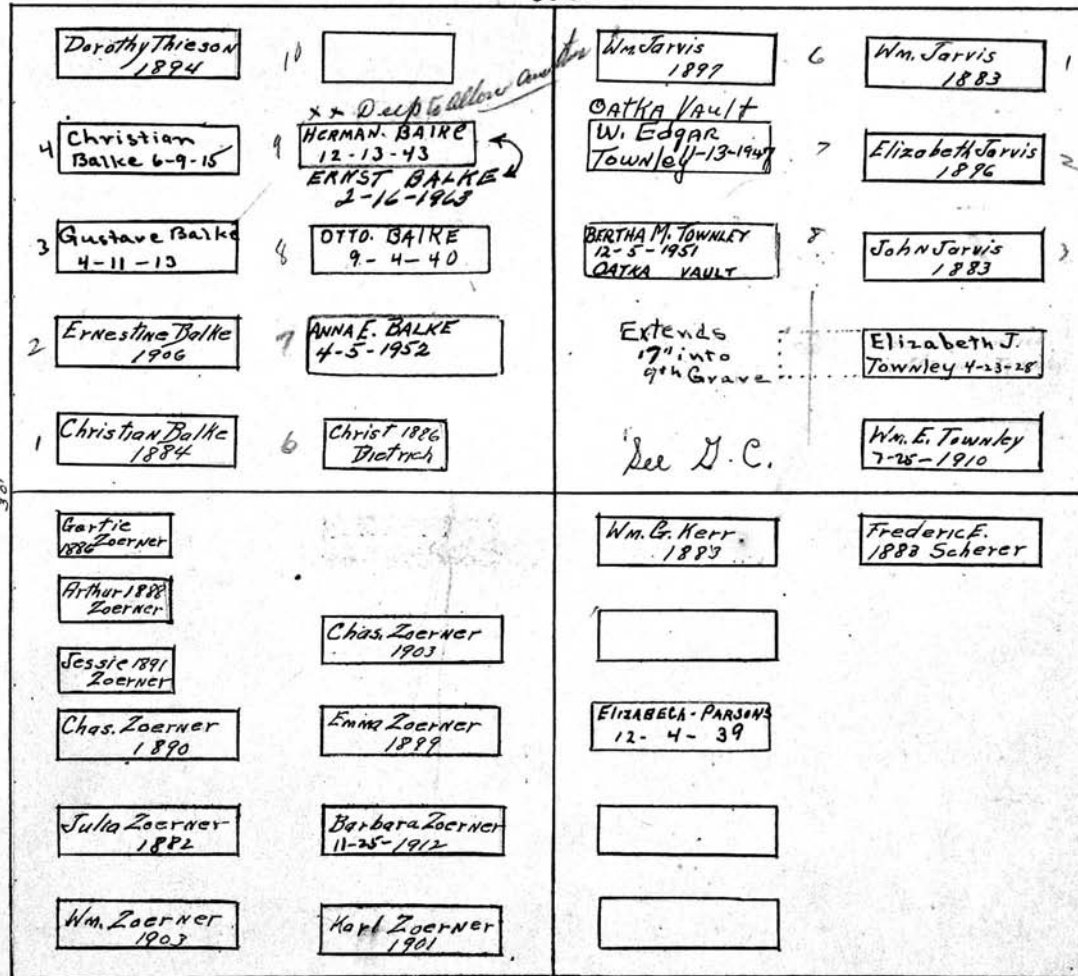 Dorothy Thieson
1894
10
4
Christian
Balke 6-9-15
xx Deep to allow another
9
HERMAN. BALKE
12-13-43
ERNST BALKE
2-16-1963
3
Gustave Balke
4-11-13
8
OTTO. BALKE
9-4-40
2
Ernestine Balke
1906
7
ANNA E. BALKE
4-5-1952
1
Christian Balke
1884
6
Christ 1886
Dietrich
Wm. Jarvis
1897
6
Wm. Jarvis
1883
1
OATKA VAULT
W. Edgar
Townley
7
Elizabeth Jarvis
1896
2
BERTHA M. TOWNLEY
12-5-1951
OATKA VAULT
8
John Jarvis
1883
3
Extends
17" into
9th Grave
Elizabeth J.
Townley 4-23-28
See G.C.
Wm. E. Townley
7-25-1910
30'
Gertie
1886 Zoerner
Arthur 1888
Zoerner
Jessie 1891
Zoerner
Chas. Zoerner
1903
Chas. Zoerner
1890
Emma Zoerner
1889
Julia Zoerner
1882
Barbara Zoerner
11-25-1912
Wm. Zoerner
1903
Karl Zoerner
1901
Wm. G. Kerr
1883
Frederic E.
1883 Scherer
ELIZABECA-PARSONS
12-4-39